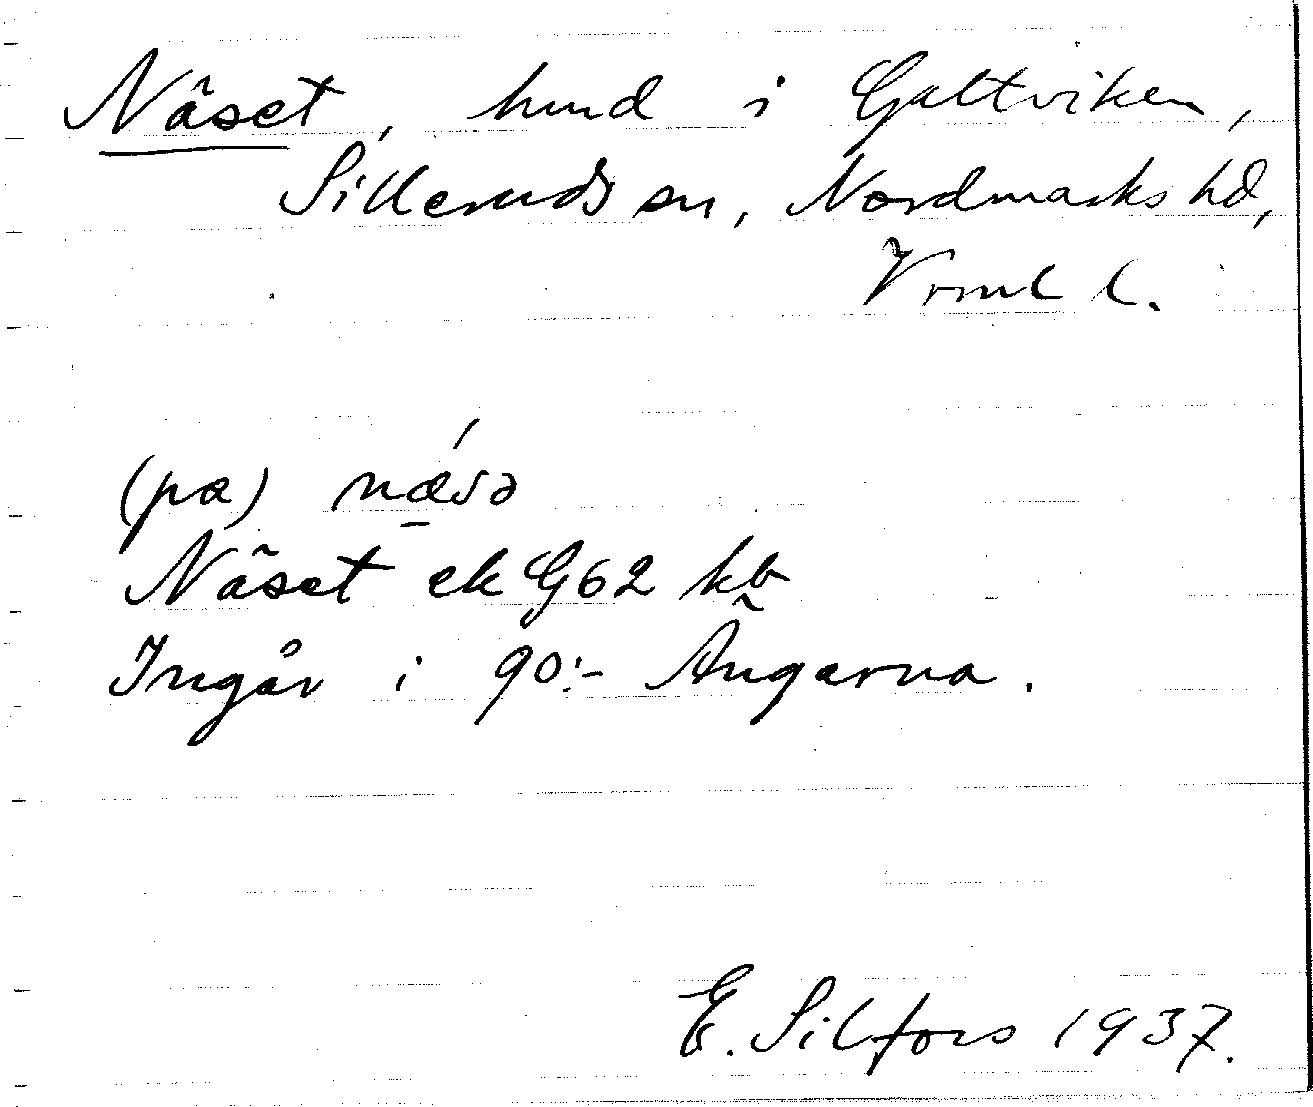 Näset, hmd i Galtviken,
Sillerudssn, Nordmarks hd,
Vrml l.
(pa) nǽ̱sə
Näset ek G62 kb
Ingår i 90:- Ängarna.
E. Silfors 1937.